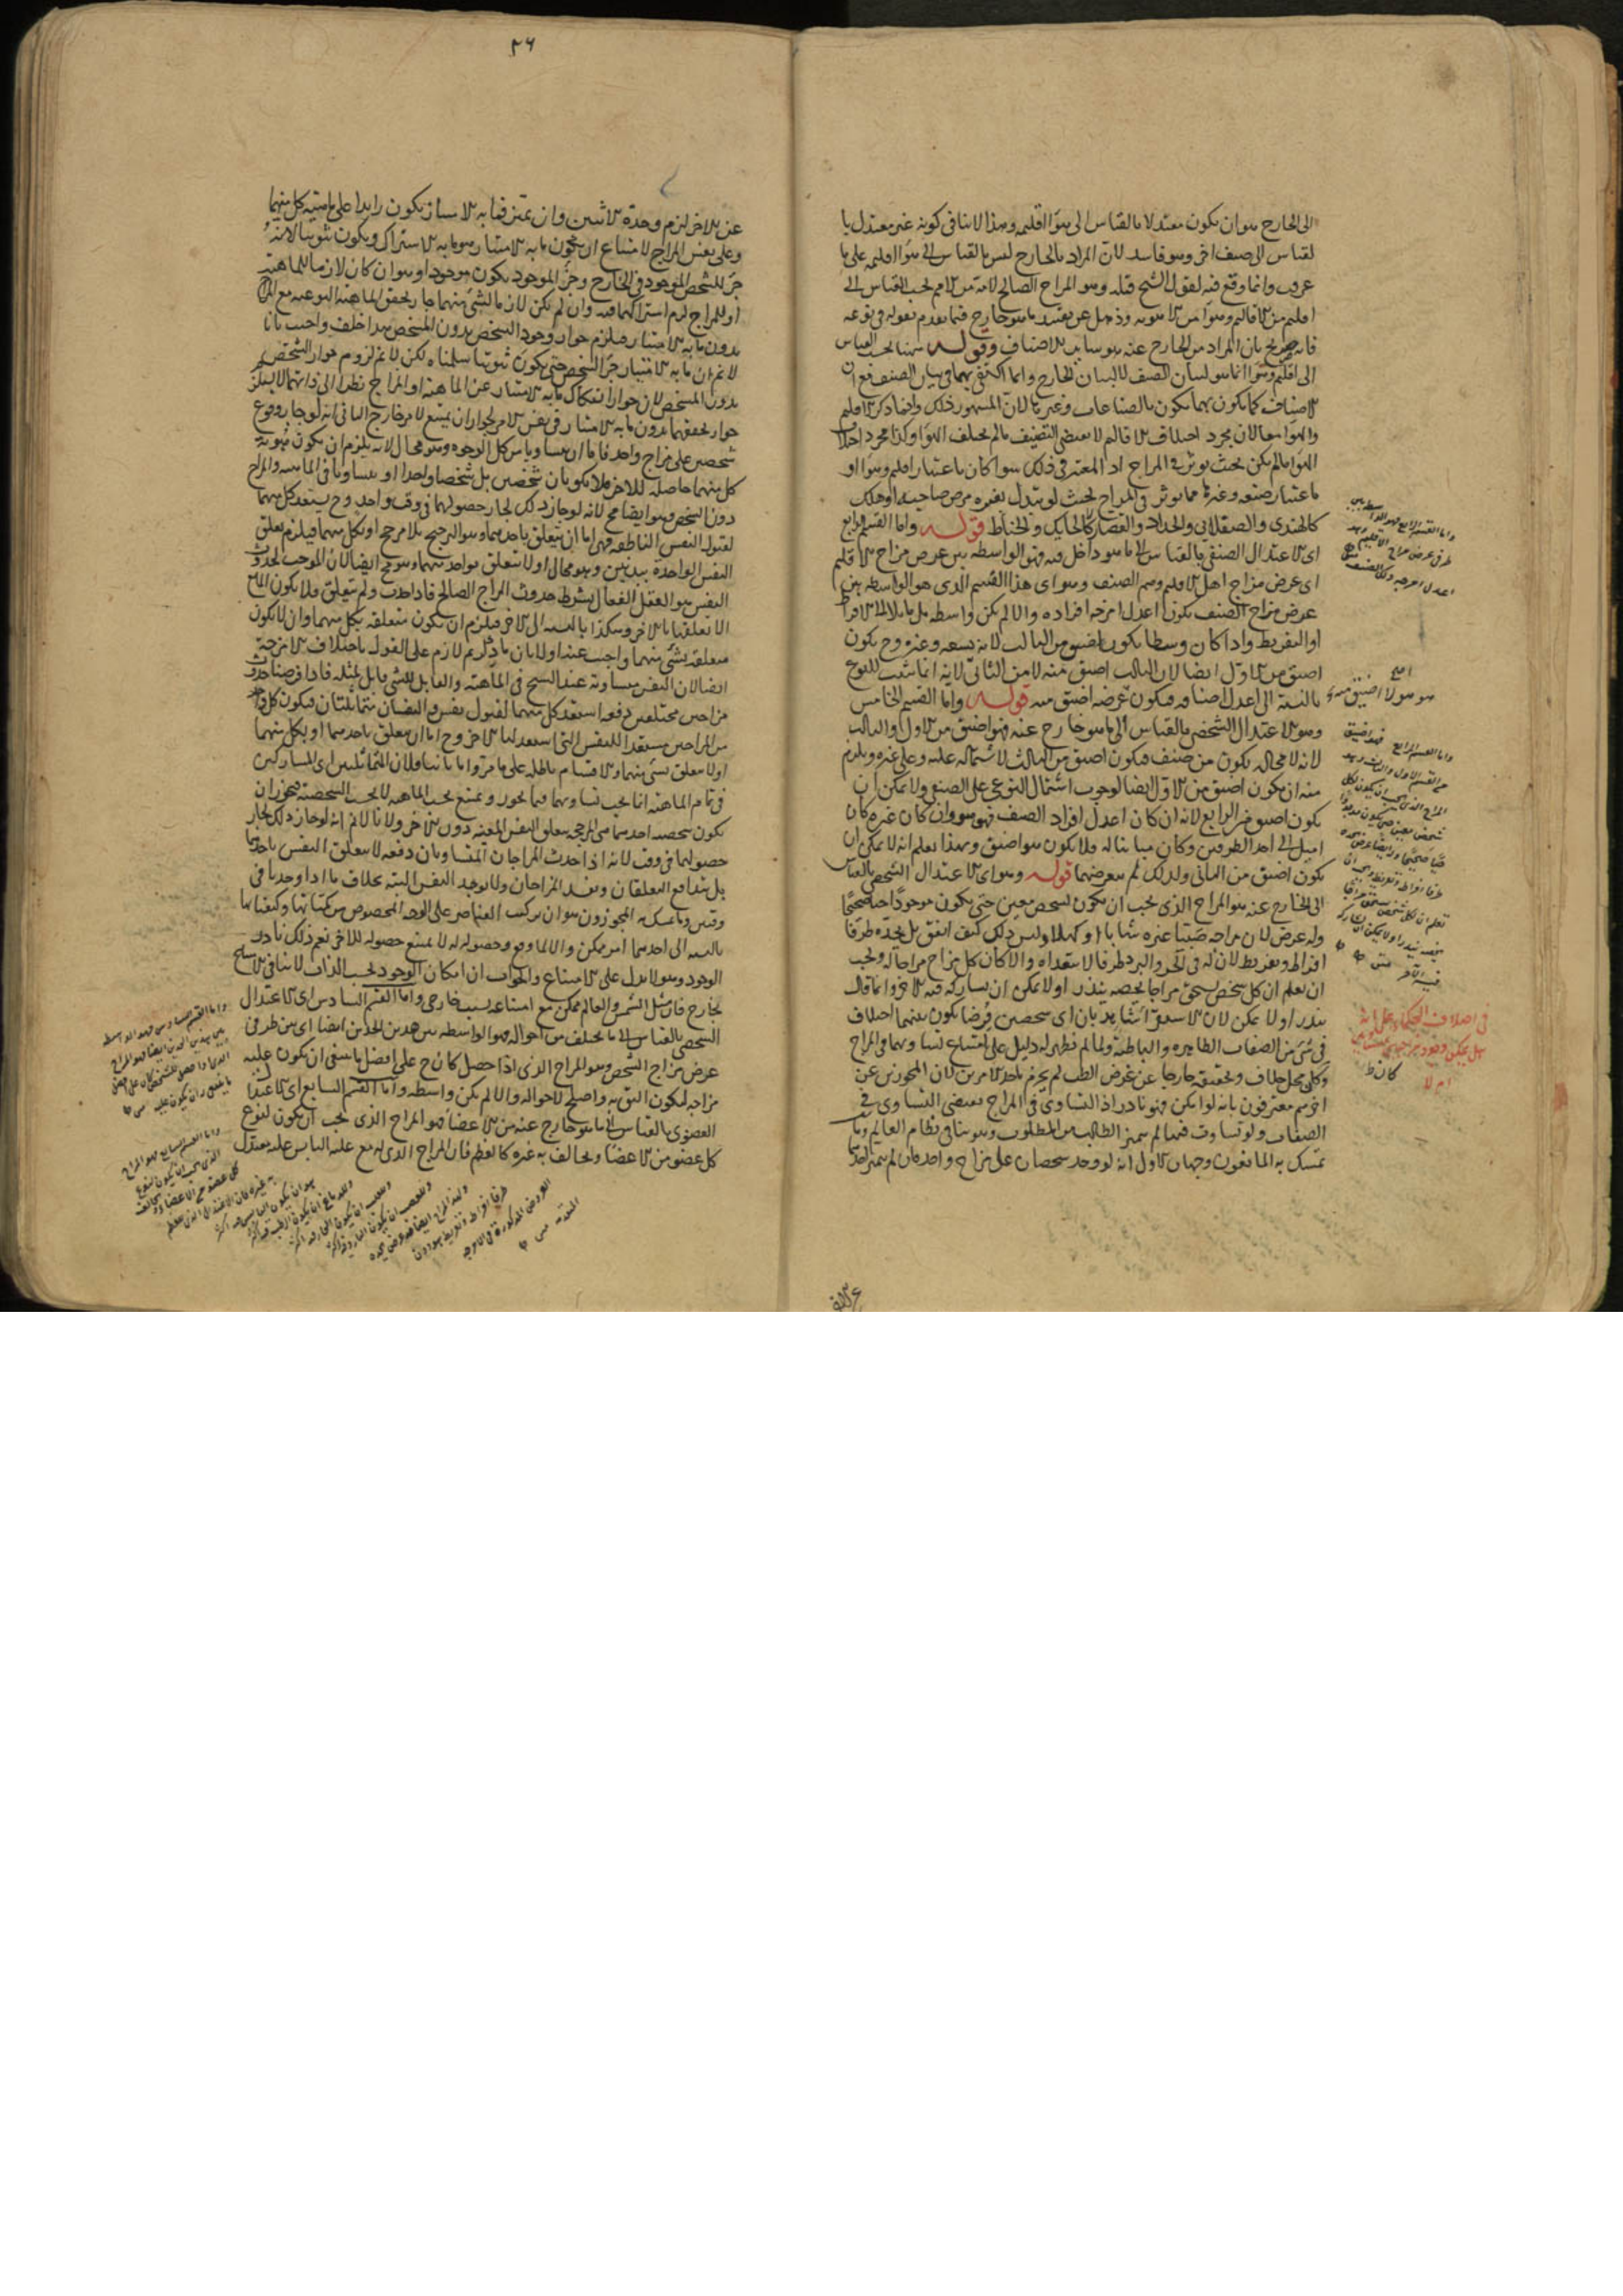 الى الخارج هو ان يكون معتدلا بالقياس الى هواء اقليمه وهذا لا ينافى كونه غير معتدل با
لقياس الى صنف اخر وهو فاسد لان المراد بالخارج ليس بالقياس الى هواء اقليمه على ما
عرف وانما وقع فيه لقول الشيخ قبله وهو المزاج الصالح لامة من الامم بحسب القياس الى
اقليم من الاقاليم وهواء من الاهوية وذهل عن تقييده ما هو خارج فيما تقدم بقوله فى نوعه
فانه صريح بان المراد من الخارج عنه هو ساير الاصناف وقوله ههنا بحسب القياس
الى اقليم وهواء انما هو لبيان الصنف لا لبيان الخارج وانما اكتفى بهما فى بيان الصنف مع ان
الاصناف كما يكون بهما يكون بالصناعات وغيرها لان المشهور ذلك وانما ذكر الاقليم
والهواء معا لان مجرد اختلاف الاقاليم لا يقتضى التصنيف ما لم يختلف الهواء وكذا مجرد اختلاف
الهواء ما لم يكن بحيث يؤثر فى المزاج اذ المعتبر فى ذلك سواء كان باعتبار اقليم وهواء او
باعتبار صنعة وغيرها مما يؤثر فى المزاج بحيث لو تبدل بغيره مرض صاحبه او هلك
كالهندى والصقلابى والحداد والقصار كالحايك والخياط قوله واما القسم الرابع
اى الاعتدال الصنفى بالقياس الى ما هو داخل فيه فهو الواسطة بين عرض مزاج الاقليم
اى عرض مزاج اهل الاقليم وهم الصنف وهو اى هذا القسم الذى هو الواسطة بين
عرض مزاج الصنف يكون اعدل امزجة افراده والا لم يكن واسطة بل مايلا الى الافراط
او التفريط واذا كان وسطا يكون اضيق من الثالث لانه يسعه وغيره وح يكون
اضيق من الاول ايضا لان الثالث اضيق منه لا من الثانى لانه انما يثبت للنوع
بالنسبة الى اعدل اصنافه فيكون عرضه اضيق منه قوله واما القسم الخامس
وهو الاعتدال الشخصى بالقياس الى ما هو خارج عنه فهو اضيق من الاول والثالث
لانه لا محالة يكون من صنف فيكون اضيق من الثالث لاشتماله عليه وعلى غيره ويلزم
منه ان يكون اضيق من الاول ايضا لوجوب اشتمال النوعى على الصنفى ولا يمكن ان
يكون اضيق من الرابع لانه ان كان اعدل افراد الصنف فهو هو وان كان غيره كان
اميل الى احد الطرفين وكان مباينا له فلا يكون هو اضيق وبهذا يعلم انه لا يمكن ان
يكون اضيق من الثانى ولذلك لم يتعرض لهما قوله وهو اى الاعتدال الشخصى بالقياس
الى الخارج عنه هو المزاج الذى يجب ان يكون لشخص معين حتى يكون موجودا حيا صحيحا
وله عرض لان مزاجه صبيا غيره شابا او كهلا وليس ذلك كيف اتفق بل يحده طرفا
افراط وتفريط لان له فى الحر والبرد طرفا لا يتعداه والا كان كل مزاج مزاجا له ويجب
ان يعلم ان كل شخص يستحق مزاجا يخصه يندر او لا يمكن ان يشاركه فيه الاخر وانما قال
يندر او لا يمكن لان الاستقراء شاهد بان اى شخصين فرضا يكون بينهما اختلاف
فى شئ من الصفات الظاهرة والباطنة ولما لم يظهر له دليل على امتناع تساويهما فى المزاج
وكان محل خلاف وتحقيقه خارجا عن غرض الطب لم يجزم باحد الامرين لان المجوزين عن
اخرهم معترفون بانه لو امكن فهو نادر اذ التساوى فى المزاج يقتضى التساوى فى
الصفات ولو تساوت فيهما لم يتميز الطالب من المطلوب وهو ينافى نظام العالم وما
تمسك به المانعون وجهان الاول انه لو وجد شخصان على مزاج واحد فان لم يتميز احدهما
واما القسم الرابع فهو الواسطة بين
طرفى عرض مزاج الاقليم وهو
اعدل امزجة ذلك الصنف
واما القسم الخامس فهو اضيق
من القسم الاول والثالث وهو
المزاج الذى يجب ان يكون لكل
شخص معين حتى يكون موجودا
حيا صحيحا وله ايضا عرض يحده
طرفا افراط وتفريط ويجب ان
تعلم ان كل شخص يستحق مزاجا
يخصه يندر او لا يمكن ان يشاركه
فيه الاخر متن
فى اختلاف الحكماء على انه
هل يمكن وجود مزاجين متساويين
ام لا
٢٦
عن الاخر لزم وحدة الاثنين وان تميز فما به الامتياز يكون زايدا على ماهية كل منهما
وعلى نفس المزاج لامتناع ان يكون ما به الامتياز هو ما به الاشتراك ويكون ثبوتيا لانه
جزء للشخص الموجود فى الخارج وجزء الموجود يكون موجودا وهو ان كان لازما للماهية
او للمزاج لزم اشتراكهما فيه وان لم يكن لازما لشئ منهما جاز تحقق الماهية النوعية مع المزاج
بدون ما به الامتياز فيلزم جواز وجود الشخص بدون المشخص هذا خلف واجيب بانا
لا نم ان ما به الامتياز جزء الشخص حتى يكون ثبوتيا سلمناه لكن لا نم لزوم جواز الشخص
بدون المشخص لان جواز انفكاك ما به الامتياز عن الماهية او المزاج نظرا الى ذاتهما لا يستلزم
جواز تحققهما بدون ما به الامتياز فى نفس الامر لجواز ان يمتنع لامر خارج الثانى انه لو جاز وقوع
شخصين على مزاج واحد فاما ان يتساويا من كل الوجوه وهو محال لانه يلزم ان يكون هوية
كل منهما حاصلة للاخر فلا يكونان شخصين بل شخصا واحدا او يتساويا فى الماهية والمزاج
دون الشخص وهو ايضا مح لانه لو جاز ذلك لجاز حصولهما فى وقت واحد وح يستعد كل منهما
لقبول النفس الناطقة فهى اما ان يتعلق باحدهما وهو الترجيح بلا مرجح او بكل منهما فيلزم تعلق
النفس الواحدة ببدنين وهو محال او لا يتعلق بواحد منهما وهو مح ايضا لان الموجب لحدوث
النفس هو العقل الفعال بشرط حدوث المزاج الصالح فاذا حدث ولم يتعلق فلا يكون المانع
الا تعلقها بالاخر وهكذا بالنسبة الى الاخر فيلزم ان يكون متعلقة بكل منهما وان لا يكون
متعلقة بشئ منهما واجيب عنه اولا بان ما ذكرتم لازم على القول باختلاف الامزجة
ايضا لان النفس متساوية عند الشيخ فى الماهية والقابل للشئ قابل لمثله فاذا فرضنا حدوث
مزاجين مختلفين دفعة استعد كل منهما لقبول نفس والنفسان متماثلتان فيكون كل واحد
من المزاجين مستعدا للنفس التى استعد لها الاخر وح اما ان يتعلق باحدهما او بكل منهما
او لا يتعلق بشئ منهما والاقسام باطلة على ما مر واما ثانيا فلان المتماثلين اى المشاركين
فى تمام الماهية انما يجب تساويهما فيما يجوز ويمتنع بحسب الماهية لا بحسب الشخصية فيجوز ان
يكون شخصية احدهما هى المرجحة لتعلق النفس المعينة دون الاخر ولانا لا نم انه لو جاز ذلك لجاز
حصولهما فى وقت لانه اذا حدث المزاجان المتساويان دفعة لا يتعلق النفس باحدهما
بل يتدافع التعلقان ويفسد المزاجان ولا يوجد النفس البتة بخلاف ما اذا وجدتا فى
وقتين وما تمسك به المجوزون هو ان تركب العناصر على الوجه المخصوص من كمياتها وكيفياتها
بالنسبة الى احدهما امر ممكن والا لما وقع وحصوله له لا يمنع حصوله للاخر نعم ذلك نادر
الوجود وهو لا يدل على الامتناع والجواب ان امكان الوجود بحسب الذات لا ينافى الامتناع
بخارج فان مثل الشمس والعالم ممكن مع امتناعه لسبب خارجى واما القسم السادس اى الاعتدال
الشخصى بالقياس الى ما يختلف من احواله فهو الواسطة بين هذين الحدين ايضا اى بين طرفى
عرض مزاج الشخص وهو المزاج الذى اذا حصل كان ح على افضل ما ينبغى ان يكون عليه
مزاجه ليكون اليق به واصلح لاحواله والا لم يكن واسطة واما القسم السابع اى الاعتدال
العضوى بالقياس الى ما هو خارج عنه من الاعضاء فهو المزاج الذى يجب ان يكون لنوع
كل عضو من الاعضاء ويخالف به غيره كالعظم فان المزاج الذى له مع غلبة اليابس عليه معتدل
واما القسم السادس فهو الواسطة
بين هذين الحدين ايضا وهو المزاج
الذى اذا حصل للشخص كان على افضل
ما ينبغى ان يكون عليه
واما القسم السابع فهو المزاج
الذى يجب ان يكون لنوع
كل عضو من الاعضاء يخالف
به غيره فان الاعتدال الذى للعظم
هو ان يكون اليابس فيه اكثر
وللدماغ ان يكون الرطب فيه اكثر
وللقلب ان يكون الحار فيه اكثر
وللعصب ان يكون البارد فيه اكثر
ولهذا المزاج ايضا عرض يحده
طرفا افراط وتفريط هو دون
العروض المذكورة فى الامزجة
المتقدمة